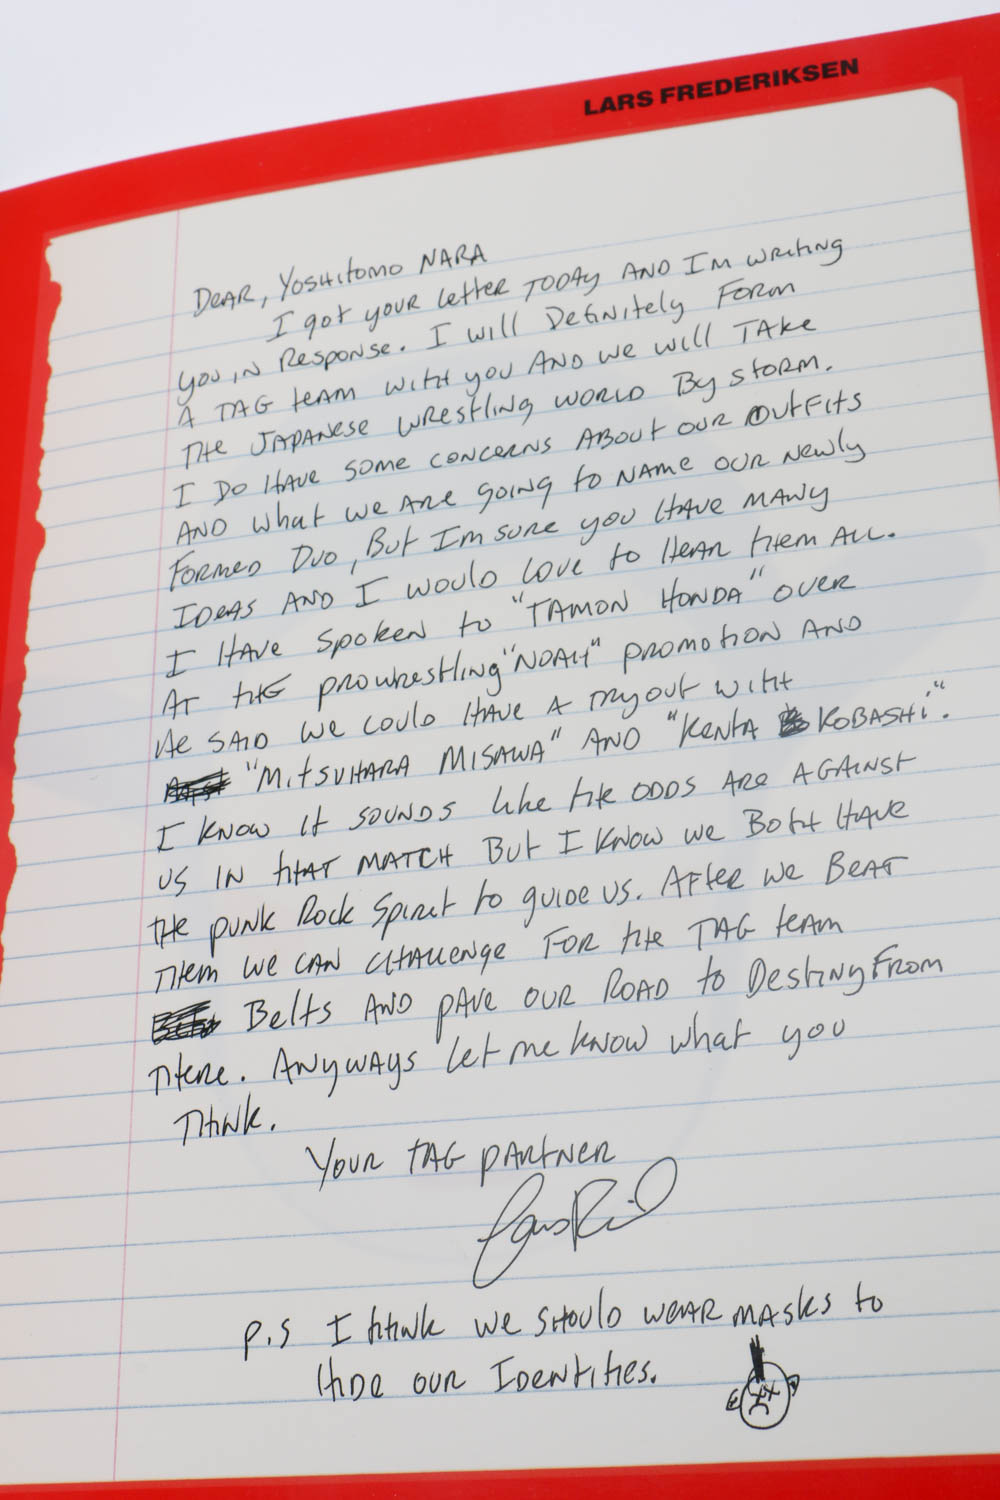 LARS FREDERIKSEN
DEAR, YOSHITOMO NARA
I got your letter TODAY AND I'm writing
you in Response. I will Definitely Form
A TAG team with you AND we will TAKE
THE JAPANESE WRESTLING WORLD By STORM.
I DO HAVE some concerns ABOUT OUR OUTFITS
AND what we ARE going to NAME OUR Newly
FORMED DUO, But I'm sure you HAVE MANY
IDEAS AND I WOULD love to HEAR them ALL.
I HAVE spoken to "TAMON HONDA" over
AT tHE prowrestling "NOAH" promotion AND
He SAID we could HAVE A tryout with
"MITSUHARA MISAWA" AND "KENTA KOBASHI".
I KNOW it SOUNDS like the ODDS ARE AGAINST
US IN tHAT MATCH But I KNOW we Both HAVE
the punk Rock Spirit to guide us. AFter we BEAT
THem we CAN CHAllenge FOR the TAG teAM
Belts AND pAve our ROAD to Destiny From
THere. Anyways let me know what you
THINK.
YOUR TAG PARTNER
p.s I think we SHOULD WEAR MASKS to
HIDe our IDentities.